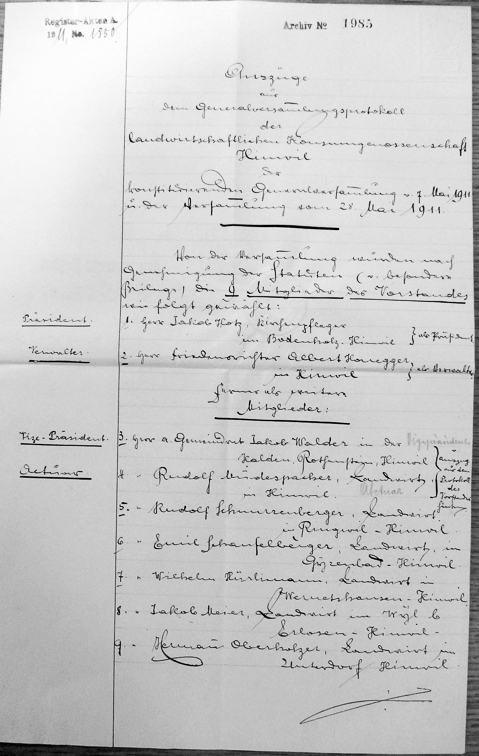 Register-Akten A.
1911, No. 1550
Archiv No 1985
Auszüge
aus
dem Generalversammlungsprotokoll
der
Landwirtschaftlichen Konsumgenossenschaft
Hinwil
der
konstituierenden Generalversammlung v. 7. Mai 1911
u. der Versammlung vom 28. Mai 1911.
Von der Versammlung wurden nach
Genehmigung der Statuten (v. besondere
Beilage) die 9 Mitglieder des Vorstandes
wie folgt gewählt:
Präsident.
1. Herr Jakob Hotz, Kirchenpfleger
im Bodenholz-Hinwil } als Präsident
Verwalter.
2. Herr Friedensrichter Albert Honegger,
in Hinwil } als Verwalter
ferner als weitere
Mitglieder:
Vize-Präsident.
3. Herr a. Gemeindrat Jakob Walder in der Vizepräsident
Halden, Rothenstein, Hinwil
Actuar
4 " Rudolf Mündespacher, Landwirt,
in Hinwil. Aktuar
Auszug
aus dem
Protokoll
des
5. " Rudolf Schnurrenberger, Landwirt
in Ringwil-Hinwil.
6 " Emil Schaufelberger, Landwirt, im
Gyrenbad-Hinwil.
7 " Wilhelm Hürlimann, Landwirt in
Wernetshausen-Hinwil.
8. " Jakob Meier, Landwirt im Wyl b
Erlosen-Hinwil.
9 " Herman Oberholzer, Landwirt im
Unterdorf Hinwil.